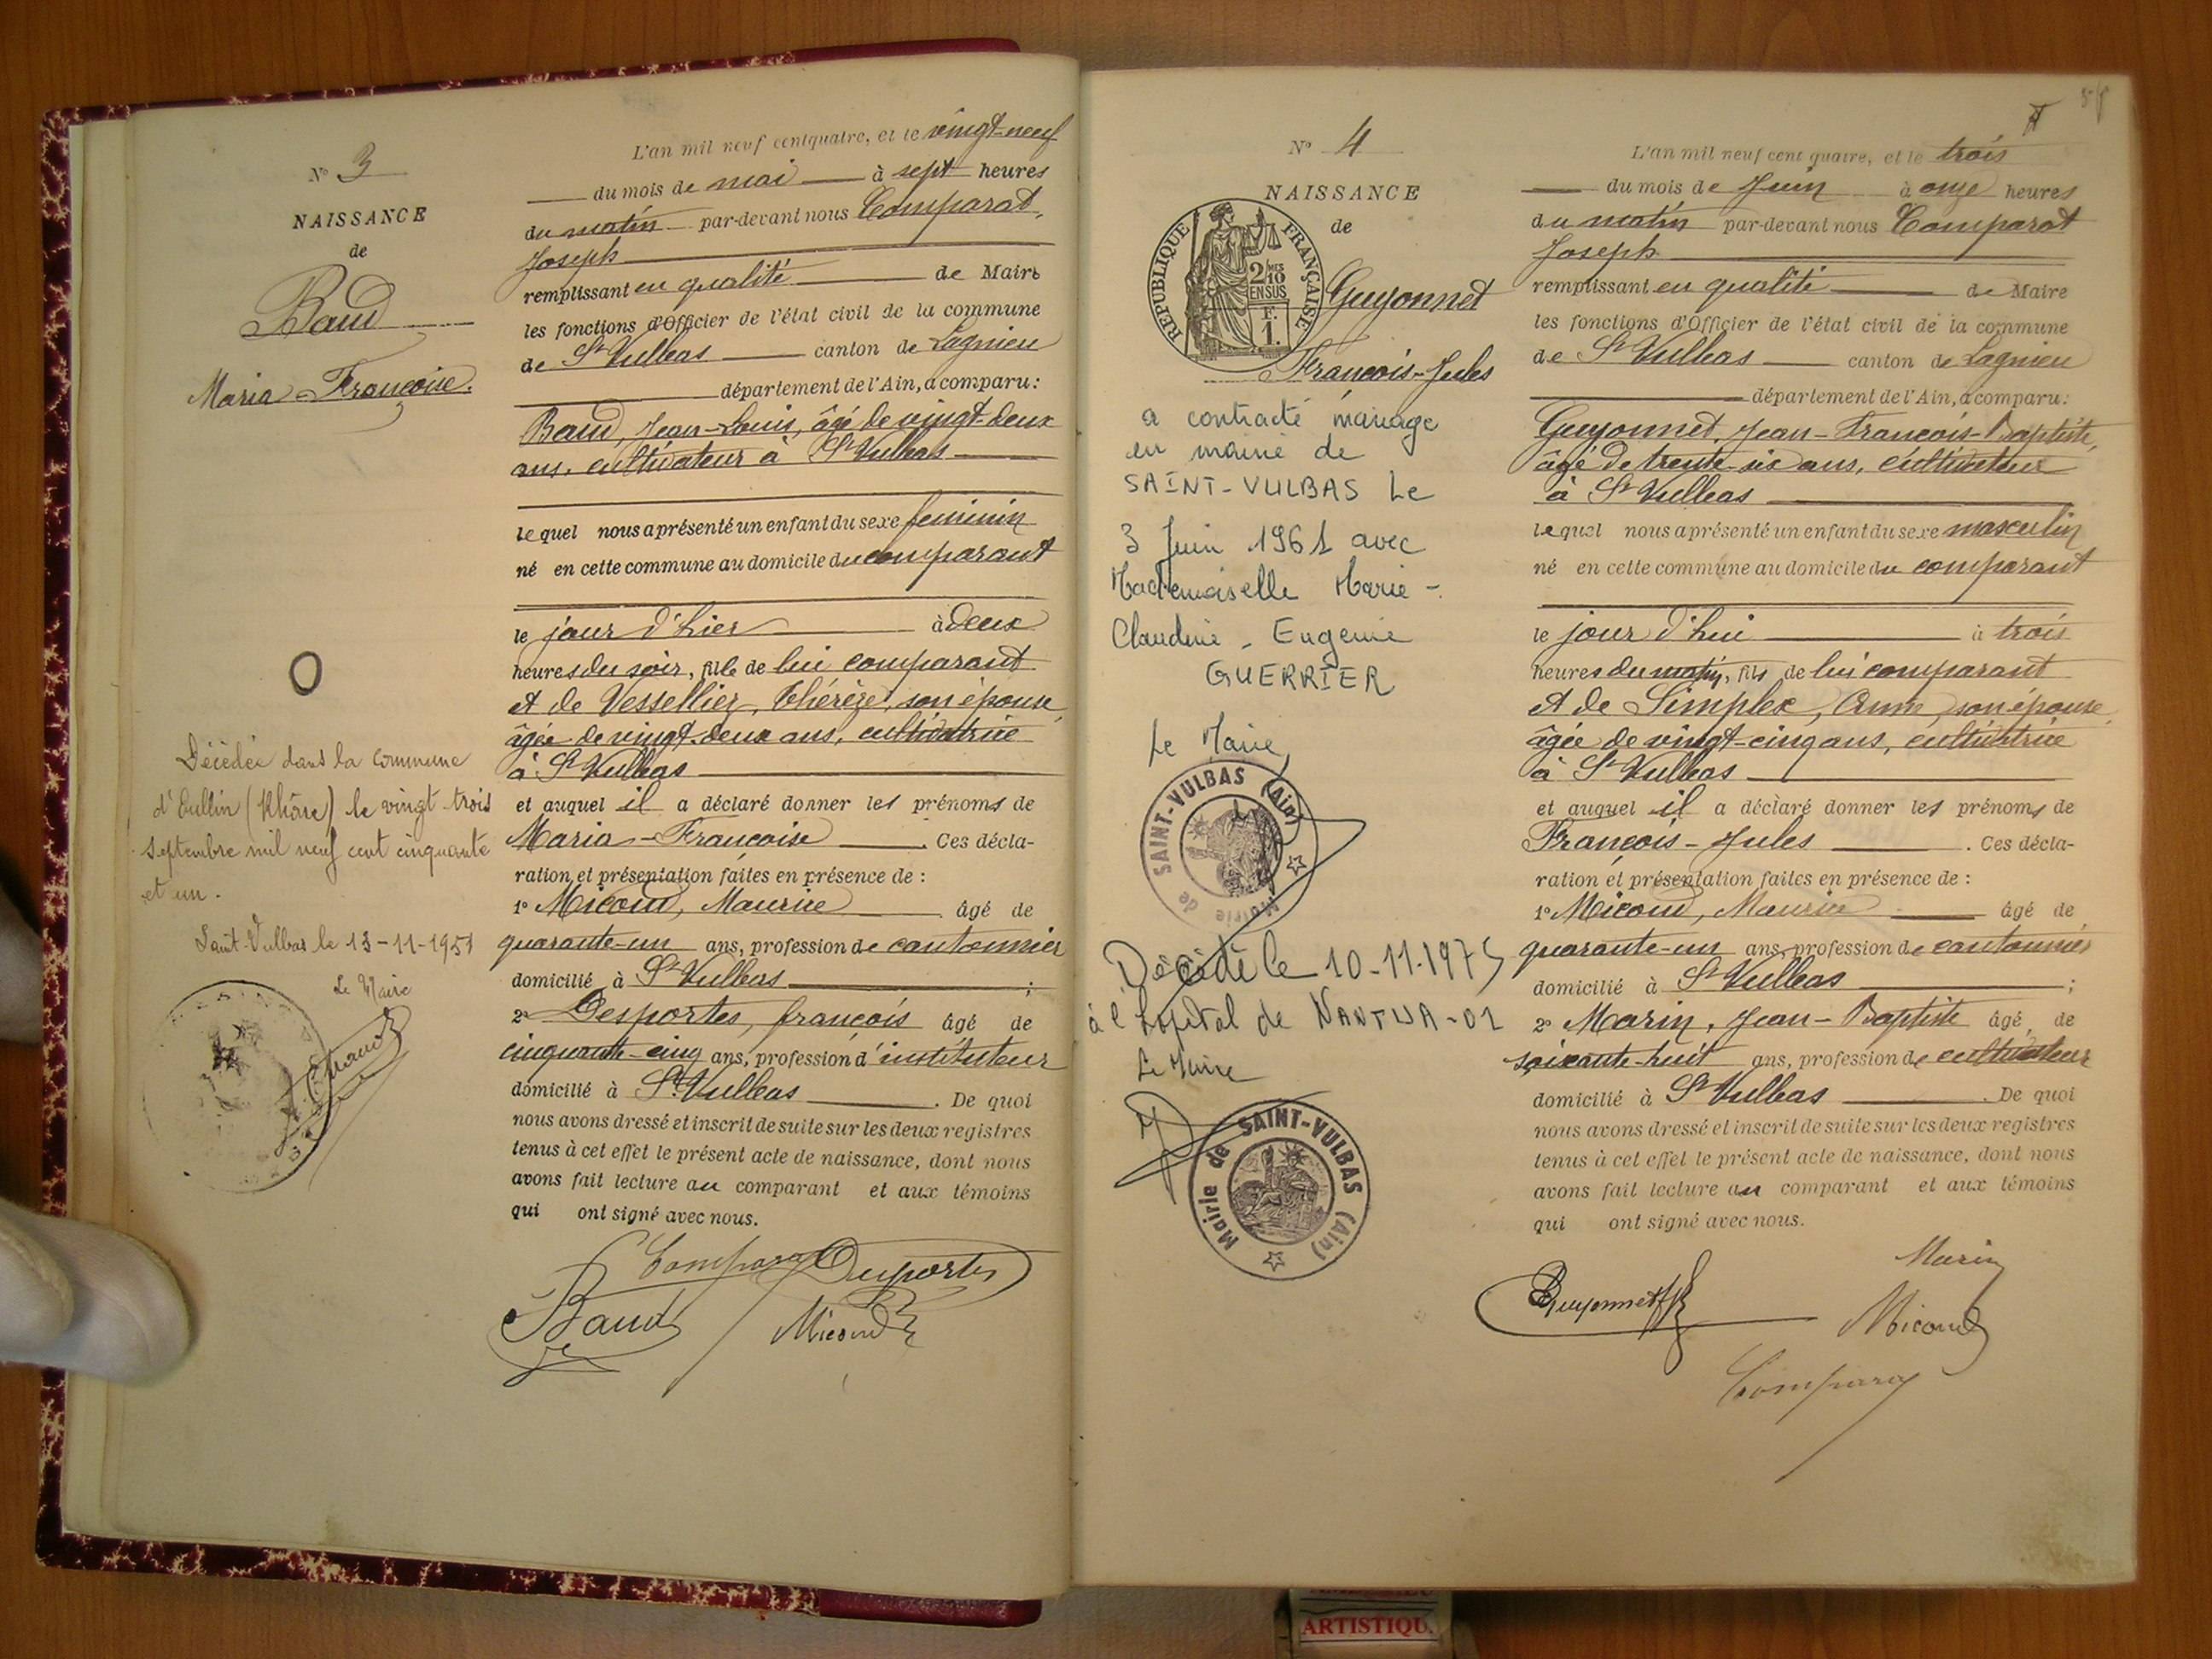 N° 3
NAISSANCE
de
Baud
Maria Françoise.
Décédée dans la commune
d'Oullin (Rhône) le vingt trois
septembre mil neuf cent cinquante
et un.
Saint-Vulbas le 13-11-1951
Le Maire
L'an mil neuf cent quatre, et le vingt-neuf
du mois de mai à sept heures
du matin par-devant nous Comparat,
Joseph
remplissant en qualité de Maire
les fonctions d'Officier de l'état civil de la commune
de St Vulbas canton de Lagnieu
département de l'Ain, a comparu:
Baud, Jean-Louis, âgé de vingt-deux
ans, cultivateur à St Vulbas
lequel nous a présenté un enfant du sexe féminin
né en cette commune au domicile du comparant
le jour d'hier à deux
heures du soir, fille de lui comparant
et de Vessellier, Thérèze, son épouse,
âgée de vingt-deux ans, cultivatrice
à St Vulbas
et auquel il a déclaré donner les prénoms de
Maria-Françoise. Ces décla-
ration et présentation faites en présence de :
1° Micoud, Maurice âgé de
quarante-un ans, profession de cantonnier
domicilié à St Vulbas ;
2° Desportes, françois âgé de
cinquante-cinq ans, profession d'instituteur
domicilié à St Vulbas. De quoi
nous avons dressé et inscrit de suite sur les deux registres
tenus à cet effet le présent acte de naissance, dont nous
avons fait lecture au comparant et aux témoins
qui ont signé avec nous.
Comparat Desportes
Baud Micoud
N° 4
NAISSANCE
de
REPUBLIQUE FRANÇAISE
2 MES
10
EN SUS
F.
1.
Guyonnet
François-Jules
a contracté mariage
en mairie de
SAINT-VULBAS Le
3 Juin 1961 avec
Mademoiselle Marie-
Claudine-Eugenie
GUERRIER
Le Maire,
Mairie de SAINT-VULBAS (Ain)
Décédé le 10-11-1975
à l'hopital de NANTUA-01
Le Maire
Mairie de SAINT-VULBAS (Ain)
L'an mil neuf cent quatre, et le trois
du mois de Juin à onze heures
du matin par-devant nous Comparat
Joseph
remplissant en qualité de Maire
les fonctions d'Officier de l'état civil de la commune
de St Vulbas canton de Lagnieu
département de l'Ain, a comparu:
Guyonnet, Jean-François-Baptiste,
âgé de trente-six ans, cultivateur
à St Vulbas
lequel nous a présenté un enfant du sexe masculin
né en cette commune au domicile du comparant
le jour d'hui à trois
heures du matin, fils de lui comparant
et de Simplex, Anne, son épouse,
âgée de vingt-cinq ans, cultivatrice
à St Vulbas
et auquel il a déclaré donner les prénoms de
François-Jules. Ces décla-
ration et présentation faites en présence de :
1° Micoud, Maurice âgé de
quarante-un ans, profession de cantonnier
domicilié à St Vulbas ;
2° Marin, Jean-Baptiste âgé de
soixante-huit ans, profession de cultivateur
domicilié à St Vulbas. De quoi
nous avons dressé et inscrit de suite sur les deux registres
tenus à cet effet le présent acte de naissance, dont nous
avons fait lecture au comparant et aux témoins
qui ont signé avec nous.
Marin
Guyonnet
Micoud
Comparat
ARTISTIQU